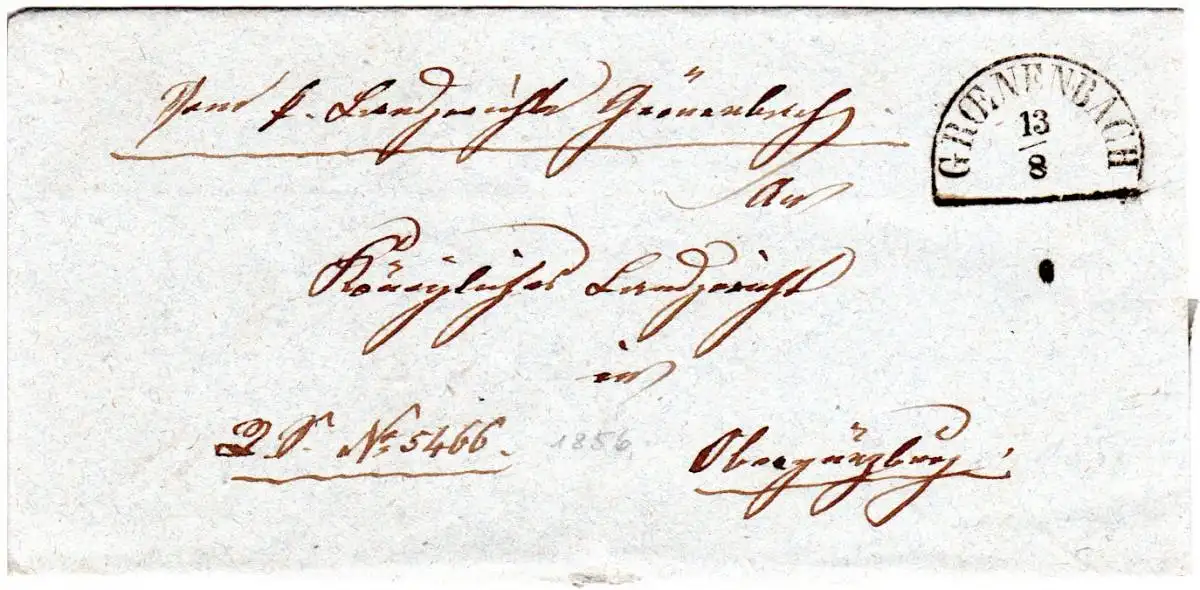 Vom k. Landgerichte Grönenbach
GROENENBACH
13
8
An
Königliches Landgericht
in
R. S. No 5466.
1856
Obergünzburg.